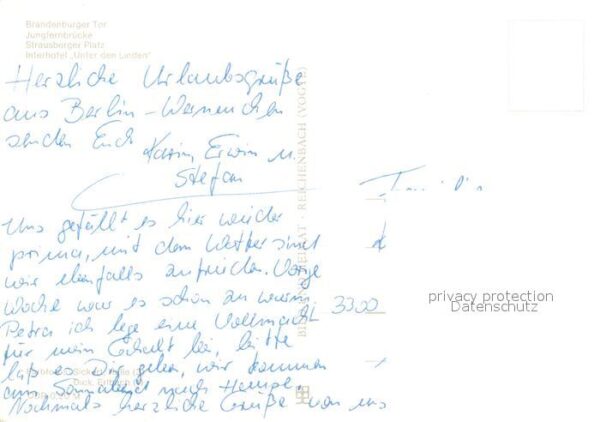 Brandenburger Tor
Jungfernbrücke
Strausberger Platz
Interhotel „Unter den Linden"
Herzliche Urlaubsgrüße
aus Berlin-Werneuchen
senden Euch
Karin, Erwin u.
Stefan
Uns gefällt es hier wieder
prima, mit dem Wetter sind
wir ebenfalls zufrieden. Vorige
Woche war es schön zu warm.
Petra ich lege eine Vollmacht
für mein Gehalt bei, bitte
laß es Dir geben, wir kommen
am Sonnabend nach Hempel.
Nochmals herzliche Grüße von uns
3300
BILD UND HEIMAT · REICHENBACH (VOGTL)
privacy protection
Datenschutz